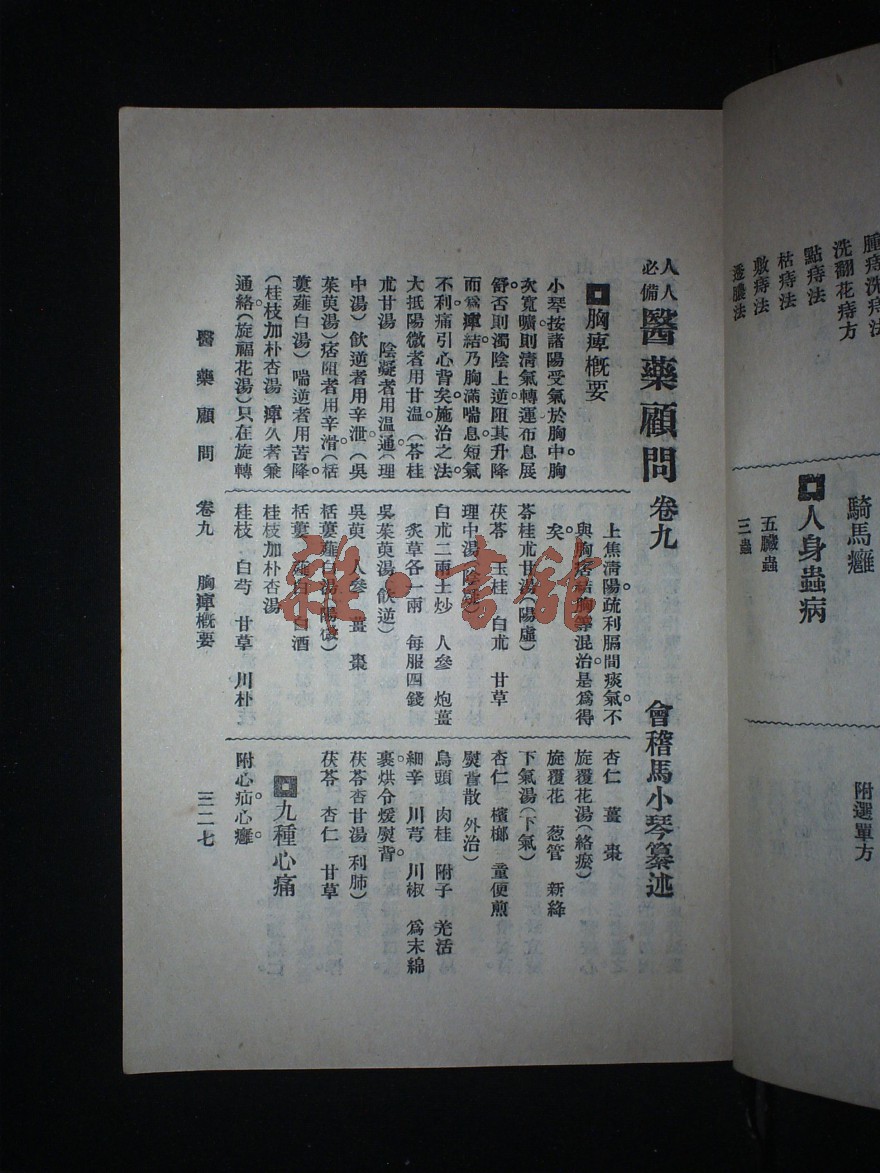 腫痔洗痔
洗翻花痔方
點痔法
枯痔法
敷痔法
透膿法
騎馬癰
人身蟲病
五臟蟲
三蟲
附選單方
人人必備 醫藥顧問 卷九 會稽馬小琴纂述
胸痺概要
小琴按諸陽受氣於胸中胸
次寬曠則淸氣轉運布息展
舒否則濁陰上逆阻其升降
而爲痺結乃胸滿喘息短氣
不利痛引心背矣施治之法
大抵陽微者用甘溫(苓桂
朮甘湯 陰凝者用温通(理
中湯)飲逆者用辛泄(吳
茱萸湯)痞阻者用辛滑(栝
蔞薤白湯)喘逆者用苦降。
(桂枝加朴杏湯 痺久者兼
通絡(旋福花湯)只在旋轉
上焦淸陽疏利膈間痰氣不
與胸痞結胸等混治是爲得
矣。
苓桂朮甘湯(陽虛)
茯苓 玉桂 白朮 甘草
理中湯
白朮二兩土炒 人參 炮薑
炙草各一兩 每服四錢
吳茱萸湯(飲逆)
吳萸 人參 薑 棗
栝蔞薤白湯(陽微)
栝蔞 薤白 白酒
桂枝加朴杏湯
桂枝 白芍 甘草 川朴
杏仁 薑 棗
旋覆花湯(絡瘀)
旋覆花 葱管 新絳
下氣湯(下氣)
杏仁 檳榔 童便煎
熨背散 外治)
烏頭 肉桂 附子 羌活
細辛 川芎 川椒 爲末綿
裹烘令煖熨背。
茯苓杏甘湯 利肺)
茯苓 杏仁 甘草
九種心痛
附心疝心癰。
醫藥顧問 卷九 胸痺概要 三二七
雜·書館